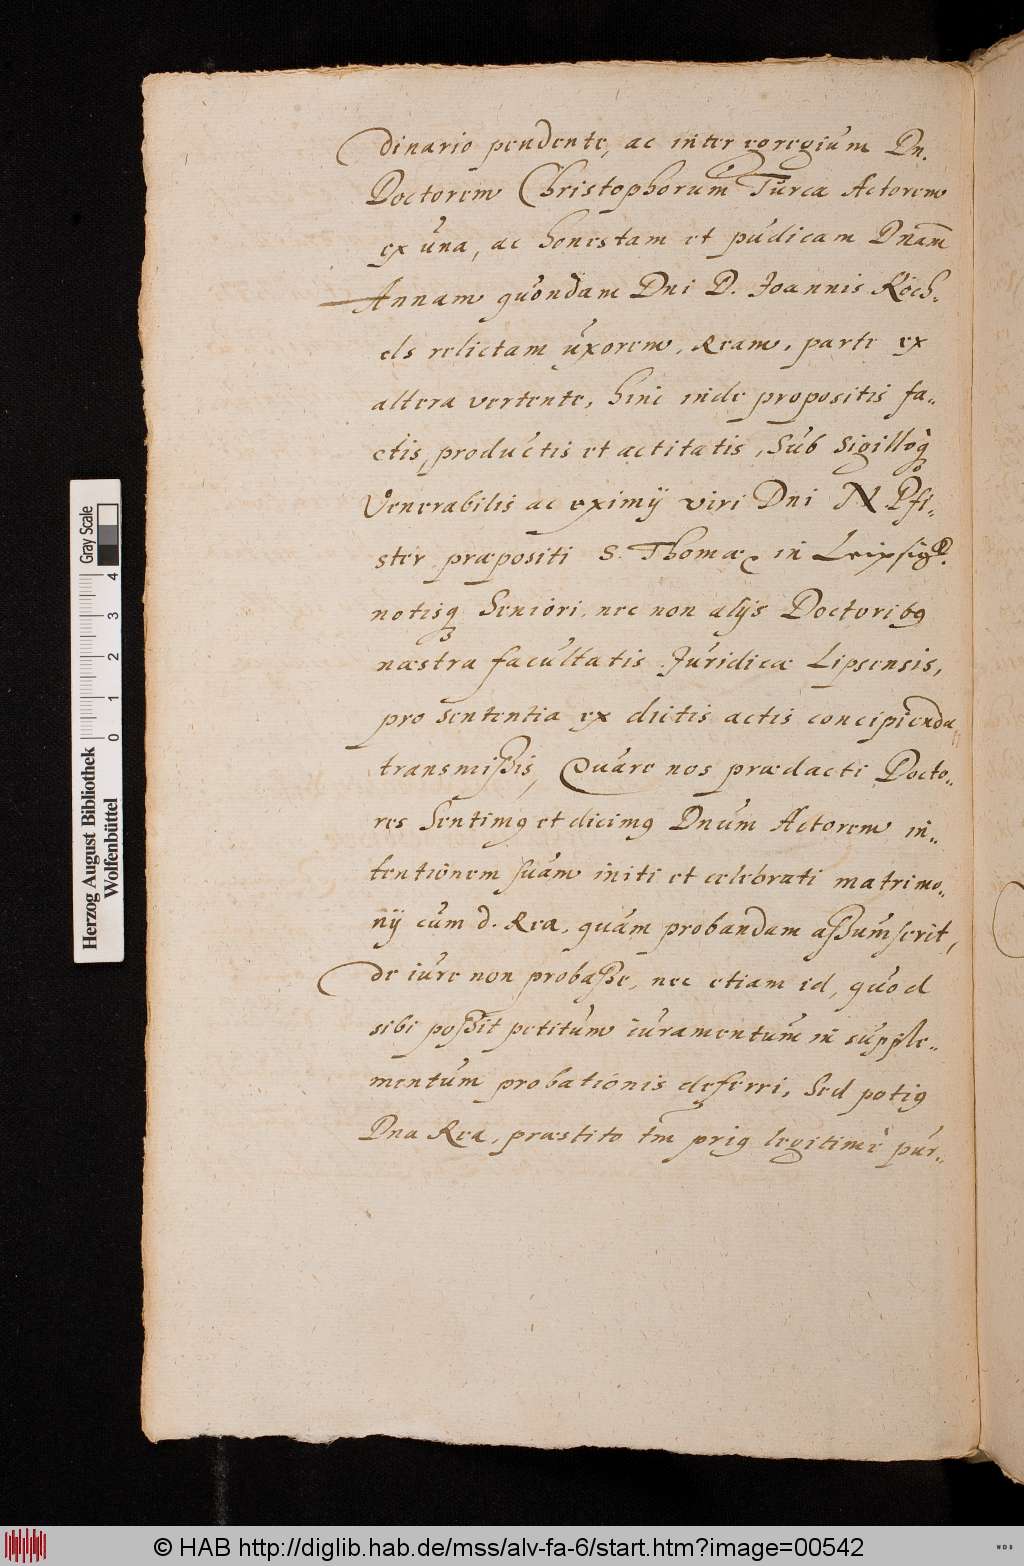 dinario pendente, ac inter egregium Dn.
Doctorem Christophorum Türca Actorem
ex una, ac honestam et pudicam Dnam̄
Annam quondam Dni D. Joannis Röch-
els relictam uxorem, Ream, parte ex
altera vertente, hinc inde propositis fa-
ctis, productis et actitatis, Sub Sigilloq
Venerabilis ac eximij viri Dni N. Pfi-
ster præpositi S. Thomæ in Leipsig
notisq Seniori, nec non alijs Doctoribq
næstra facultatis Juridicæ Lipsensis,
pro sententia ex dictis actis concipienda
transmißis, Quare nos prædacti Docto-
res Sentimq et dicimq Dnum Actorem in-
tentionem suam initi et celebrati matrimo-
nij cum d. Rea, quam probandam aßumserit,
de iure non probaße, nec etiam id, quod
sibi poßit petitum iuramentum in supple-
mentum probationis deferri, Sed potiq
Dna Rea, præstito tm̄ priq legitimè pur-
Herzog August Bibliothek
Wolfenbüttel
0 1 2 3 4
Gray Scale
© HAB http://diglib.hab.de/mss/alv-fa-6/start.htm?image=00542